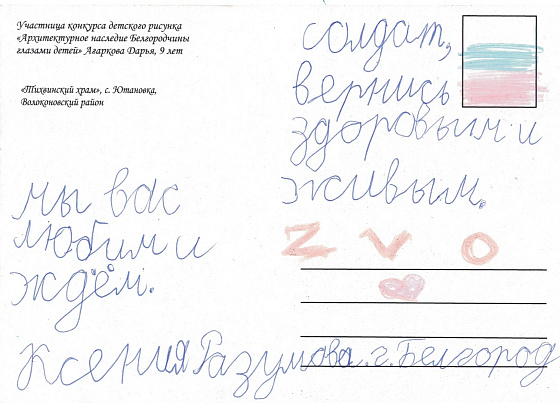 Участница конкурса детского рисунка
«Архитектурное наследие Белгородчины
глазами детей» Агаркова Дарья, 9 лет
«Тихвинский храм», с. Ютановка,
Волоконовский район
солдат,
вернись
здоровым и
живым.
мы вас
любим и
ждём.
Z V O
Ксения Разумова г. Белгород